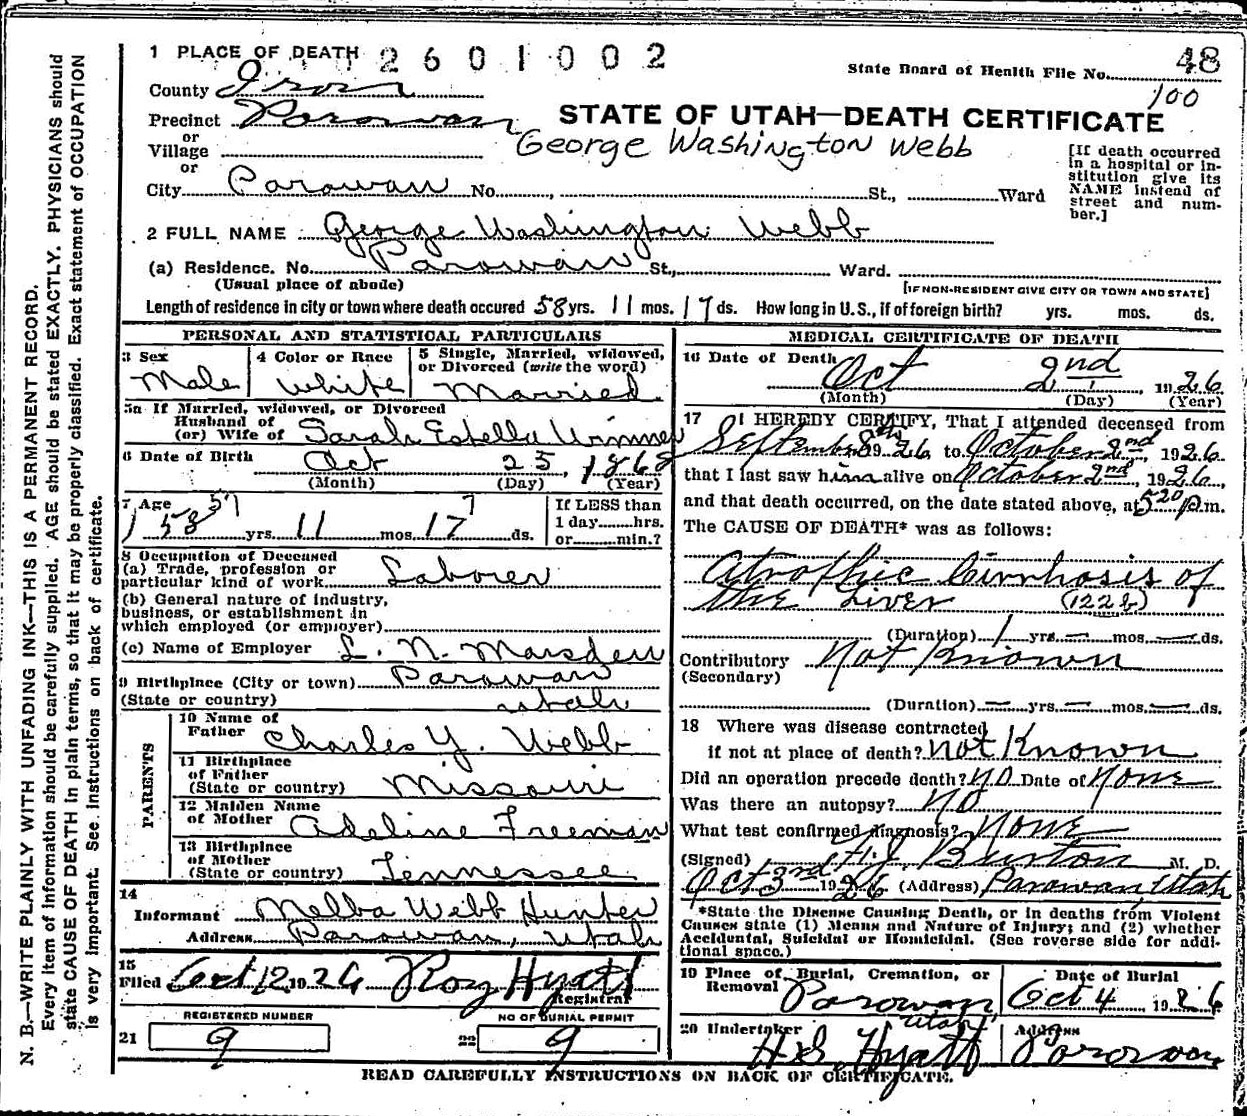 1 PLACE OF DEATH 2601002
State Board of Health File No. 48
100
County Iron
Precinct Parowan
STATE OF UTAH—DEATH CERTIFICATE
or
Village
George Washington Webb
or
City Parowan No. , St., Ward
[If death occurred in a hospital or institution give its NAME instead of street and number.]
2 FULL NAME George Washington Webb
(a) Residence. No. Parowan St., Ward.
(Usual place of abode)
[IF NON-RESIDENT GIVE CITY OR TOWN AND STATE]
Length of residence in city or town where death occured 58 yrs. 11 mos. 17 ds. How long in U. S., if of foreign birth? yrs. mos. ds.
PERSONAL AND STATISTICAL PARTICULARS
3 Sex
Male
4 Color or Race
White
5 Single, Married, widowed,
or Divorced (write the word)
Married
5a If Married, widowed, or Divorced
Husband of
(or) Wife of Sarah Estella Wimmer
6 Date of Birth Oct 25, 1868
(Month) (Day) (Year)
7 Age 57 7
58 yrs. 11 mos. 17 ds.
If LESS than
1 day hrs.
or min.?
8 Occupation of Deceased
(a) Trade, profession or
particular kind of work Laborer
(b) General nature of industry,
business, or establishment in
which employed (or employer)
(c) Name of Employer L. N. Marsden
9 Birthplace (City or town) Parowan
(State or country) Utah
PARENTS
10 Name of
Father Charles Y. Webb
11 Birthplace
of Father
(State or country) Missouri
12 Maiden Name
of Mother Adeline Freeman
13 Birthplace
of Mother
(State or country) Tennessee
14
Informant Melba Webb Hunter
Address Parowan, Utah
15
Filed Oct 12 1926 Roy Hyatt
Registrar
REGISTERED NUMBER
21 9
NO OF BURIAL PERMIT
22 9
MEDICAL CERTIFICATE OF DEATH
16 Date of Death Oct 2nd, 1926
(Month) (Day) (Year)
17 I HEREBY CERTIFY, That I attended deceased from
September 8th 1926, to October 2nd, 1926.
that I last saw him alive on October 2nd, 1926,
and that death occurred, on the date stated above, at 520 p.m.
The CAUSE OF DEATH* was as follows:
Atrophic Cirrhosis of
the Liver (122b)
(Duration) 1 yrs. — mos. — ds.
Contributory Not Known
(Secondary)
(Duration) — yrs. — mos. — ds.
18 Where was disease contracted
if not at place of death? Not Known
Did an operation precede death? No Date of None
Was there an autopsy? No
What test confirmed diagnosis? None
(Signed) Burton M. D.
Oct 3rd 1926 (Address) Parowan, Utah
*State the Disease Causing Death, or in deaths from Violent
Causes state (1) Means and Nature of Injury; and (2) whether
Accidental, Suicidal or Homicidal. (See reverse side for addi-
tional space.)
19 Place of Burial, Cremation, or
Removal Parowan
Utah
Date of Burial
Oct 4 1926
20 Undertaker
H. S. Hyatt
Address
Parowan
READ CAREFULLY INSTRUCTIONS ON BACK OF CERTIFICATE.
N. B.—WRITE PLAINLY WITH UNFADING INK—THIS IS A PERMANENT RECORD.
Every item of information should be carefully supplied. AGE should be stated EXACTLY. PHYSICIANS should
state CAUSE OF DEATH in plain terms, so that it may be properly classified. Exact statement of OCCUPATION
is very important. See instructions on back of certificate.